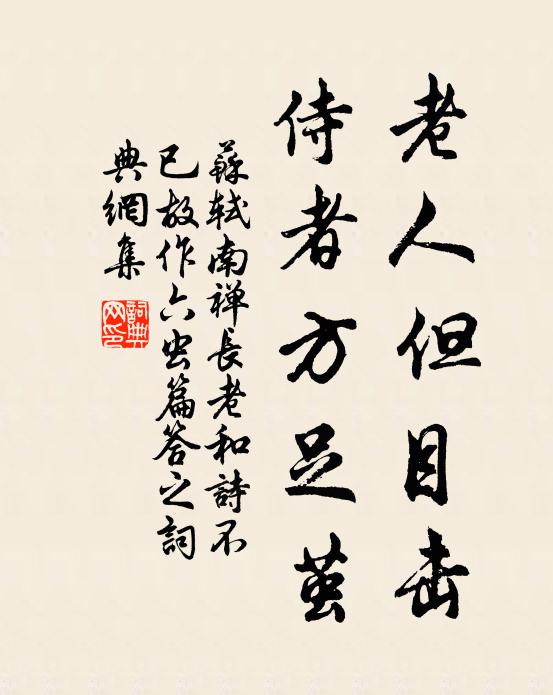 老人但目击
侍者方足茧
蘇軾南禅長老和詩不
已故作六虫篇答之詞
典網集
詞典
网印